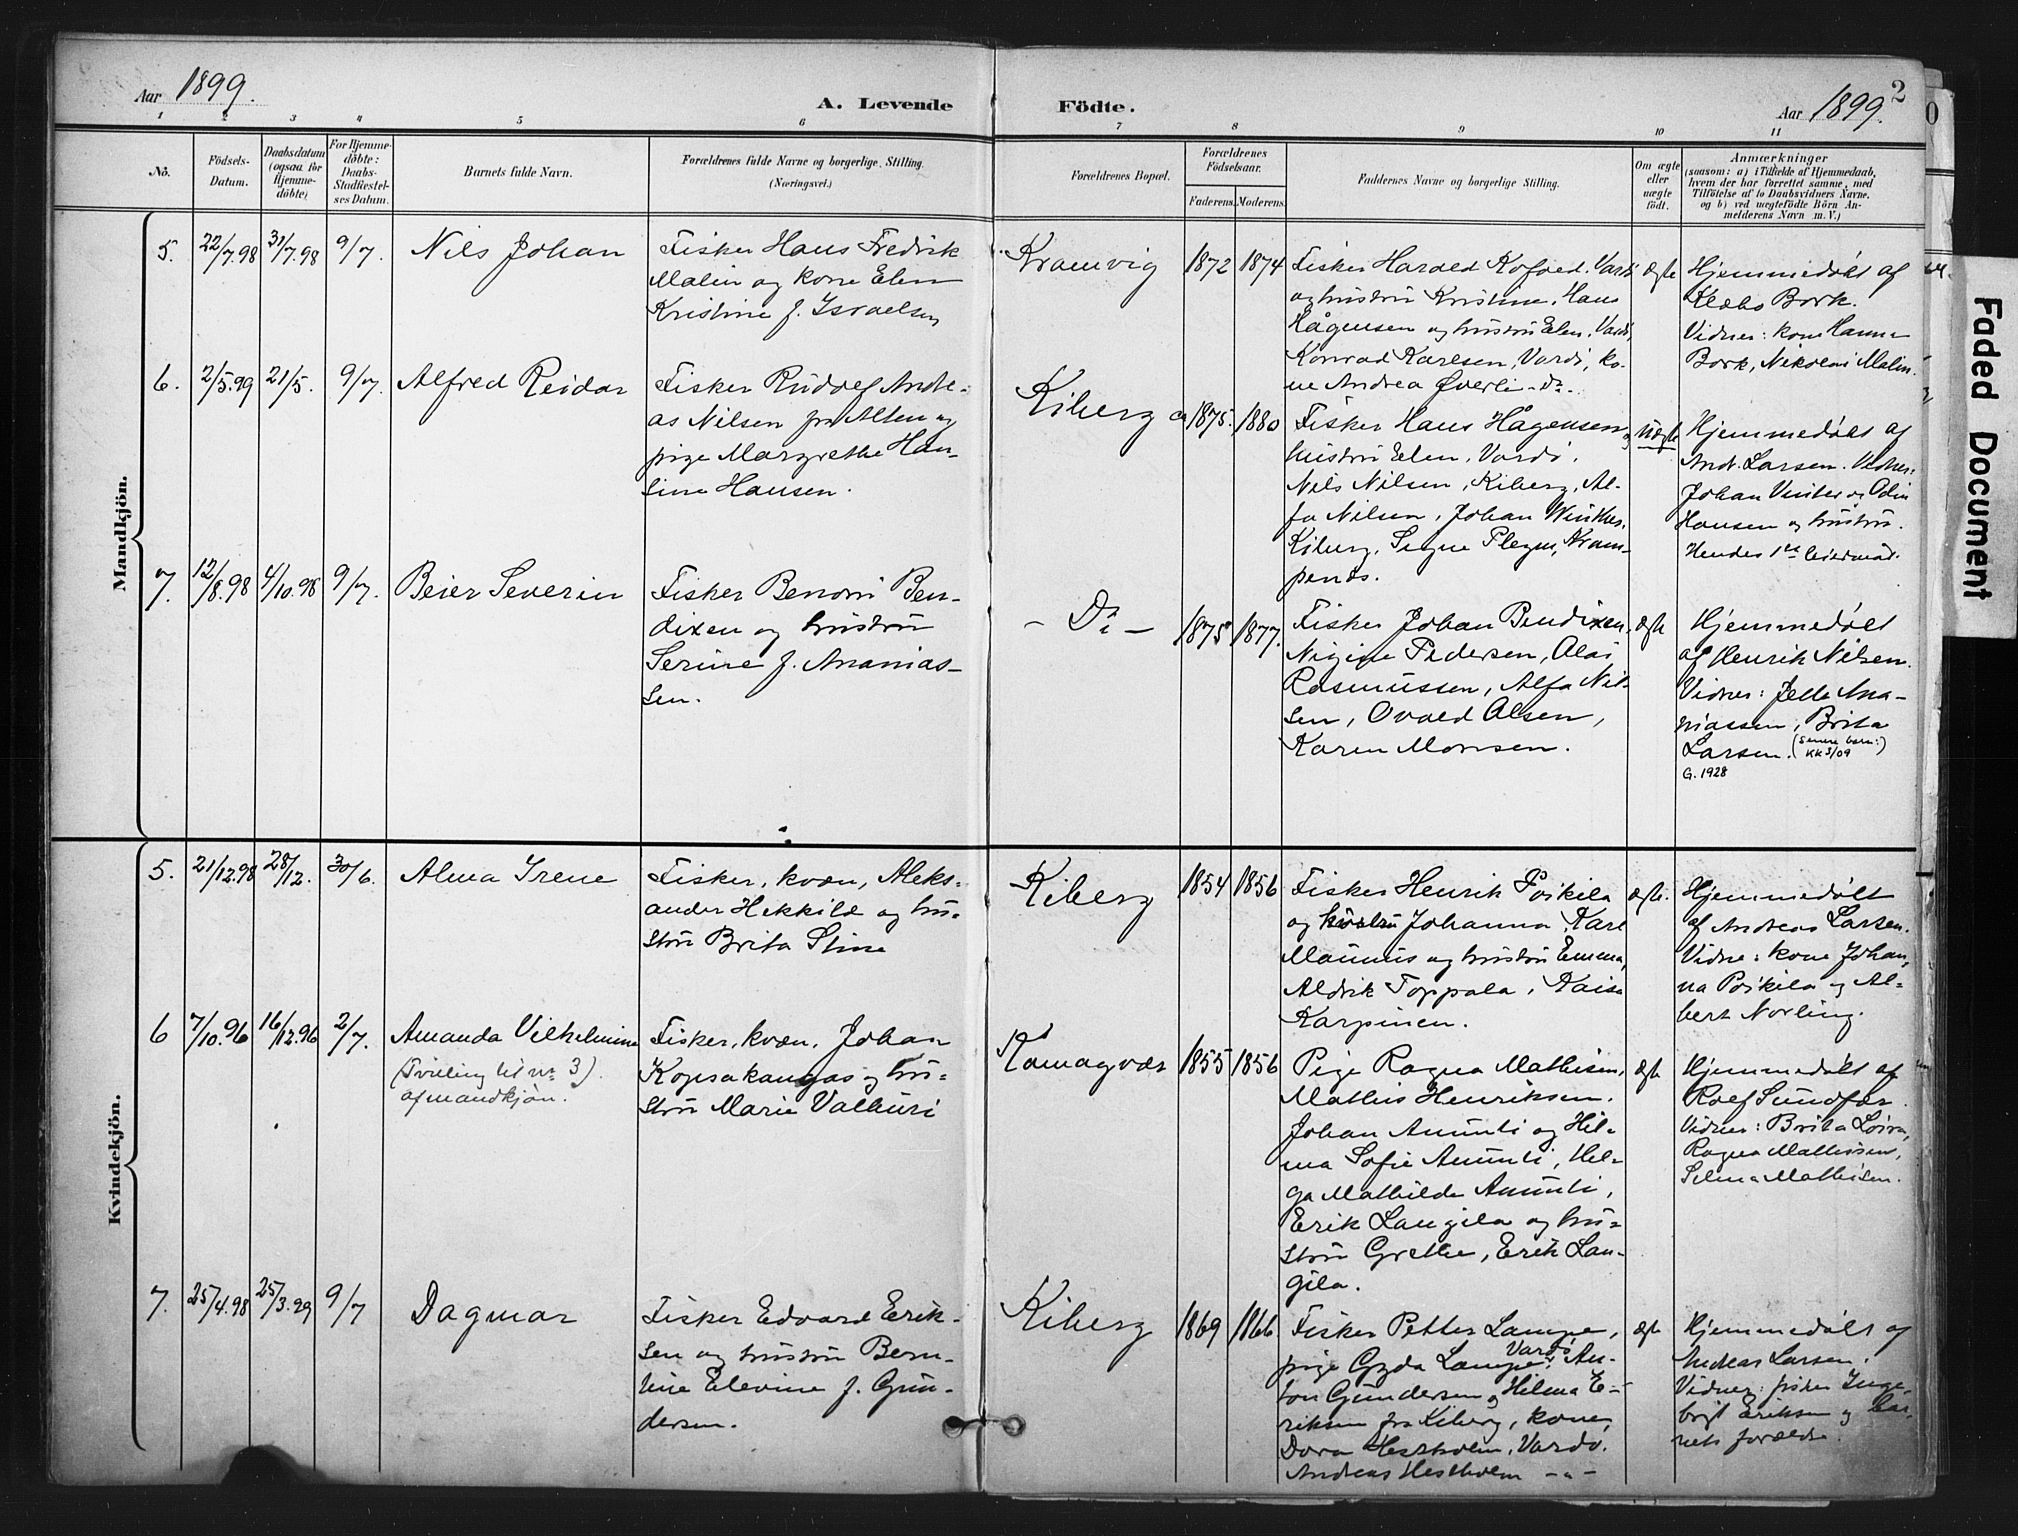 Aar 1899.
A. Levende
Födte.
Aar 1899.
2
1 2 3 4 5 6 7 8 9 10 11
No.
Födsels-
Datum.
Daabsdatum
(ogsaa for
Hjemme-
döbte)
For Hjemme-
döbte:
Daabs-
Stadfæstel-
ses Datum.
Barnets fulde Navn.
Forældrenes fulde Navne og borgerlige Stilling.
(Næringsvei.)
Forældrenes Bopæl.
Forældrenes
Födselsaar.
Faderens.
Moderens.
Faddernes Navne og borgerlige Stilling.
Om ægte
eller
uægte
födt.
Anmærkninger
(saasom: a) i Tilfælde af Hjemmedaab,
hvem der har forrettet samme, med
Tilföielse af to Daabsvidners Navne,
og b) ved uægtefödte Börn An-
melderens Navn m. V.)
Mandkjön.
5.
22/7.98
31/7.98
9/7.
Nils Johan
Fisker Hans Fredrik
Malin og kone Elen
Kristine f. Israelsen
Kramvig
1872
1874
Fisker Harald Kofoed. Vardö
og hustru Kristine. Hans
Hågensen og hustru Elen. Vardö,
Konrad Karlsen, Vardö, ko-
ne Andrea Överli - do -
ægte
Hjemmedöbt af
Klæbo Bork.
Vidner: kone Hanna
Bork, Nikolai Malin.
6.
2/5.99
21/5.
9/7.
Alfred Reidar
Fisker Rudolf Andre-
as Nilsen fra Alten og
pige Margrethe Han-
sine Hansen.
Kiberg
ca 1875.
1880
Fisker Hans Hågensen og
hustru Elen, Vardö.
Nils Nilsen, Kiberg, Al-
fa Nilsen, Johan Winther,
Kiberg, Signe Flegm, Kram-
penes.
Uægte
Hjemmedöbt af
And. Larsen. Vidner:
Johan Vinter og Odin
Hansen og hustru.
Hendes 1ste leiermål.
7.
12/8.98
4/10.98
9/7.
Beier Severin
Fisker Benoni Ben-
dixen og hustru
Serine f. Ananias-
sen.
- Do -
1875
1877.
Fisker Johan Bendixen,
Pedersen, Olai
Rasmussen, Alfa Nil-
sen, Ovald Olsen,
Karen Monsen.
ægte
Hjemmedöbt
af Henrik Nilsen.
Vidner: Jelle Ana-
niassen, Brita
Larsen. (Senere barn:)
KK 3/09
G. 1928
Kvindekjön.
5.
21/12.98
28/12.
30/6.
Alma Irene
Fisker, kvæn, Aleks-
ander Heikkilæ og hu-
stru Brita Stina
Kiberg
1854
1856
Fisker Henrik Poikila
og hustru Johanna, Karl
Maunus og hustru Emma,
Aldrik Toppala, Kaisa
Karpinen.
ægte.
Hjemmedöbt
af Andreas Larsen.
Vidne: kone Johan-
na Poikila og Al-
bert Norling.
6
7/10.96
16/12.96
2/7.
Amanda Vilhelmine
(Tvilling til nr. 3)
af mandkjön.
Fisker, kvæn, Johan
Kopsakangas og hu-
stru Marie Valkuri
Komagvær
1855
1856
Pige Ragna Mathisen,
Mathis Henriksen.
Johan Anunti og Hil-
ma Sofie Anunti, Hel-
ga Mathilde Anunti,
Erik Langila og hu-
stru Grethe, Erik Lan-
gila.
ægte
Hjemmedöbt af
Rolf Sundfær.
Vidner: Brita
Ragna Mathisen,
Selma Mathisen.
7.
25/4.98
25/3.99
9/7
Dagmar
Fisker Edvard Erik-
sen og hustru Bern-
tine Elevine f. Gun-
dersen.
Kiberg
1869
1866
Fisker Petter Lampe,
pige Gyda Lampe, Vardö. An-
ton Gundersen og Hilma E-
riksen fra Kiberg, kone
Dora Hestholm, Vardö,
Andreas Hestholm - " -
ægte
Hjemmedöbt af
Andreas Larsen.
Vidner: fisker Inge-
brigt Eriksen og bar-
nets forældre.
Faded Document